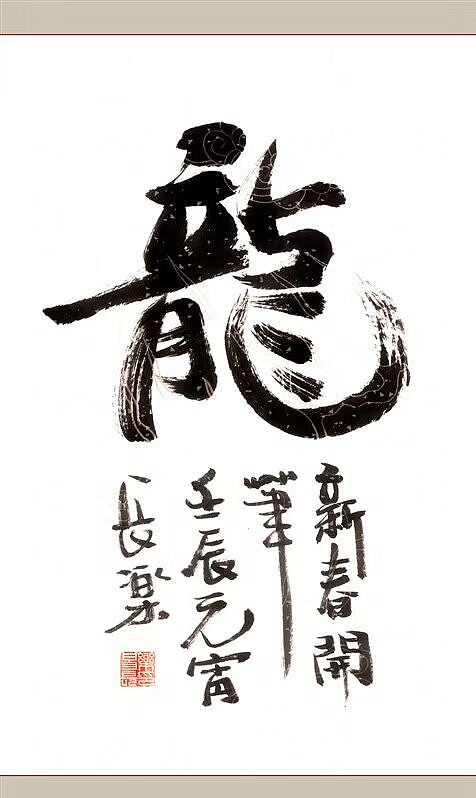 龍
新春開
筆
壬辰元宵
長樂